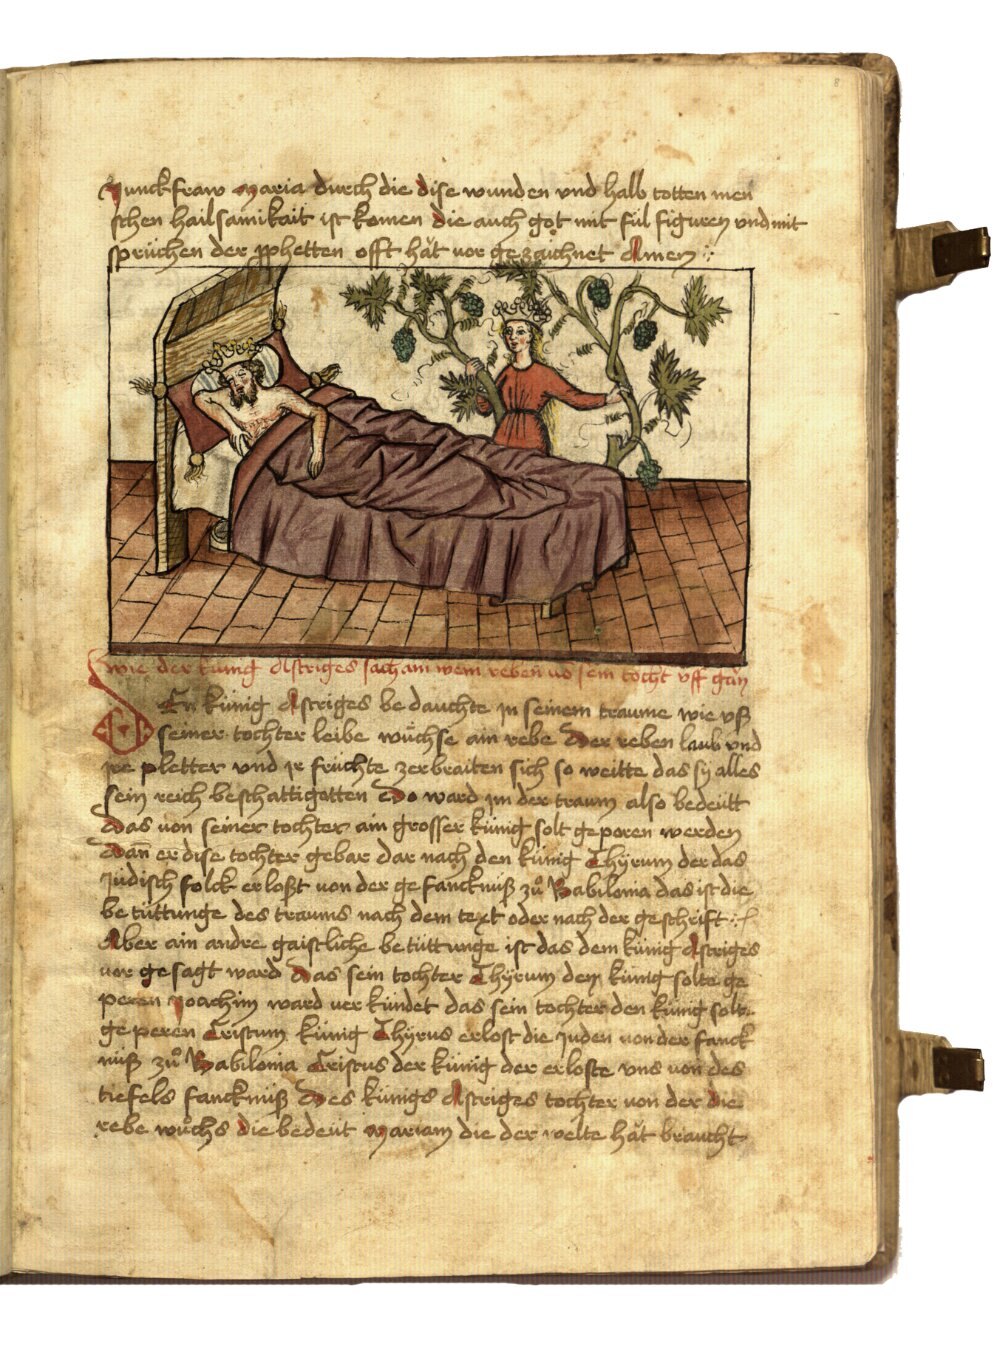 8
Junckfraw Maria durch die dise wunden vnd halb totten men
schen hailsamikait ist komen die auch got mit fúl figuren vnd mit
sprúchen der ꝓphetten offt hăt vor gezaichnet Amen
Wie der kúnig Astriges sach ain wein reben vō sein tocht vff gān
Em kúnig Astriges bedauchte jn seinem traume wie vß
seiner tochter leibe wúchse ain rebe Der reben laub vnd
jre pletter vnd jr frúchte zerbraiten sich so weitte das sÿ alles
sein reich beschattigotten Do ward jm der traum also bedeútt
Das von seiner tochter ain grosser kúnig solt geporen werden
Dañ er dise tochter gebar dar nach den kúnig Thÿrum der das
Júdisch folck erloßt von der gefanckniß zů Babilonia das ist die
betúttunge des traums nach dem text oder nach der geschrift
Aber ain andre gaistliche betúttunge ist das dem kúnig Astriges
vor gesagt ward Das sein tochter Thÿrum den kúnig solte ge
peren Joachim ward verkúndet das sein tochter den kúnig solt
geperen Cristum kúnig Thÿrus erlost die Juden von der fanck
niß zů Babilonia Cristus der kúnig der erloste vns von des
tiefels fanckniß Des kúnigs Astriges tochter von der die
rebe wůchs die bedeút Mariam die der welte hăt braucht